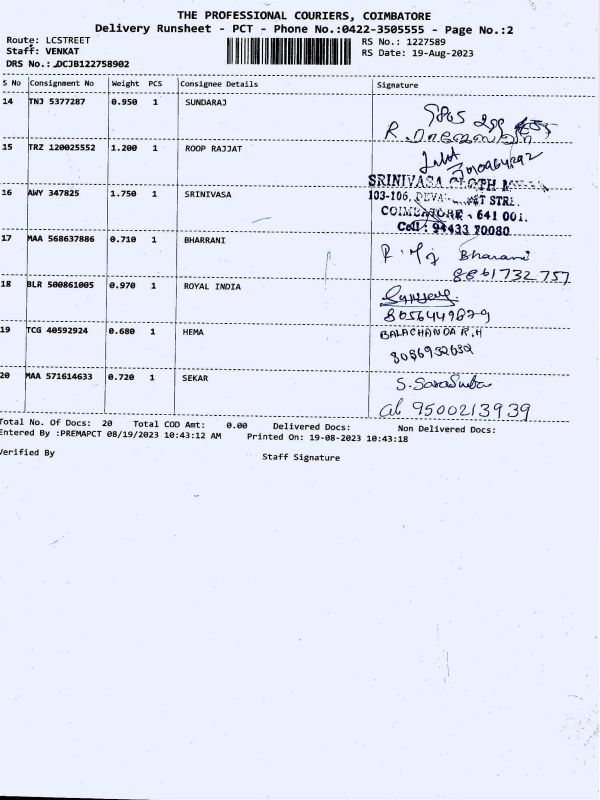 THE PROFESSIONAL COURIERS, COIMBATORE
Delivery Runsheet - PCT - Phone No.:0422-3505555 - Page No.:2
Route: LCSTREET
RS No.: 1227589
Staff: VENKAT
RS Date: 19-Aug-2023
DRS No.: DCJB122758902
S No Consignment No Weight PCS Consignee Details Signature
14 TNJ 5377287 0.950 1 SUNDARAJ
R.
15 TRZ 120025552 1.200 1 ROOP RAJJAT
SRINIVASA CLOTH
16 AWY 347825 1.750 1 SRINIVASA
103-106, STRE
COIMBATORE - 641 001.
Cell: 94433 20080
17 MAA 568637886 0.710 1 BHARRANI
R. Bharani
8861732757
18 BLR 500861005 0.970 1 ROYAL INDIA
8056449829
19 TCG 40592924 0.680 1 HEMA
BALACHANDA R.H
8056932632
20 MAA 571614633 0.720 1 SEKAR
S.
9500213939
Total No. Of Docs: 20 Total COD Amt: 0.00 Delivered Docs: Non Delivered Docs:
Entered By :PREMAPCT 08/19/2023 10:43:12 AM Printed On: 19-08-2023 10:43:18
Verified By
Staff Signature